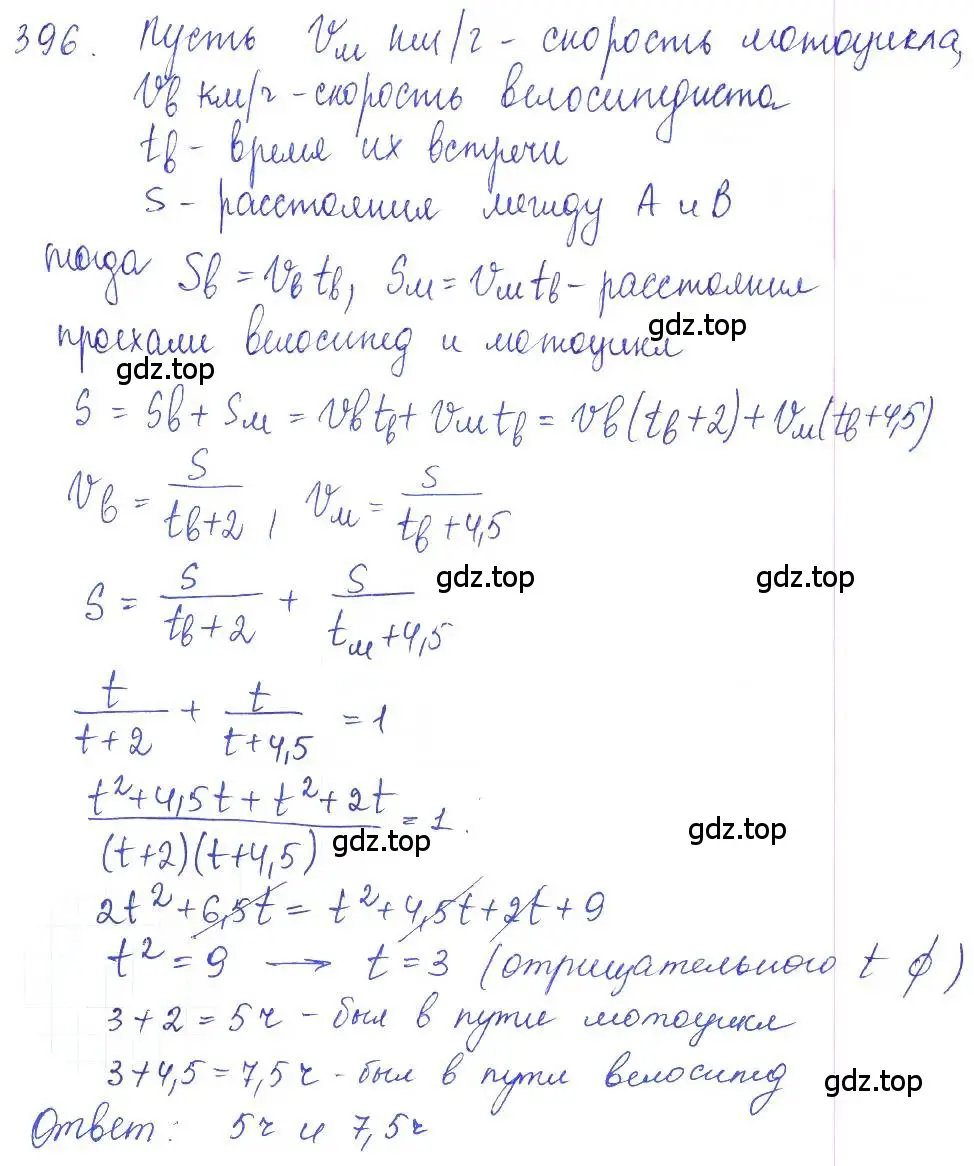 396. Пусть Vм км/г - скорость мотоцикла,
Vв км/г - скорость велосипедиста
tв - время их встречи
S - расстояния между А и В
тогда Sв = Vв tв, Sм = Vм tв - расстояния
проехали велосипед и мотоцикл
gdz.top
gdz.top
S = Sв + Sм = Vв tв + Vм tв = Vв (tв + 2) + Vм (tв + 4,5)
Vв = S/(tв + 2), Vм = S/(tв + 4,5)
gdz.top gdz.top
S = S/(tв + 2) + S/(tм + 4,5)
t/(t + 2) + t/(t + 4,5) = 1
(t² + 4,5t + t² + 2t)/((t + 2)(t + 4,5)) = 1.
gdz.top gdz.top
2t² + 6,5t = t² + 4,5t + 2t + 9
t² = 9 → t = 3 (отрицательного t ∅)
3 + 2 = 5 ч - был в пути мотоцикл
3 + 4,5 = 7,5 ч - был в пути велосипед
gdz.top
Ответ: 5ч и 7,5ч